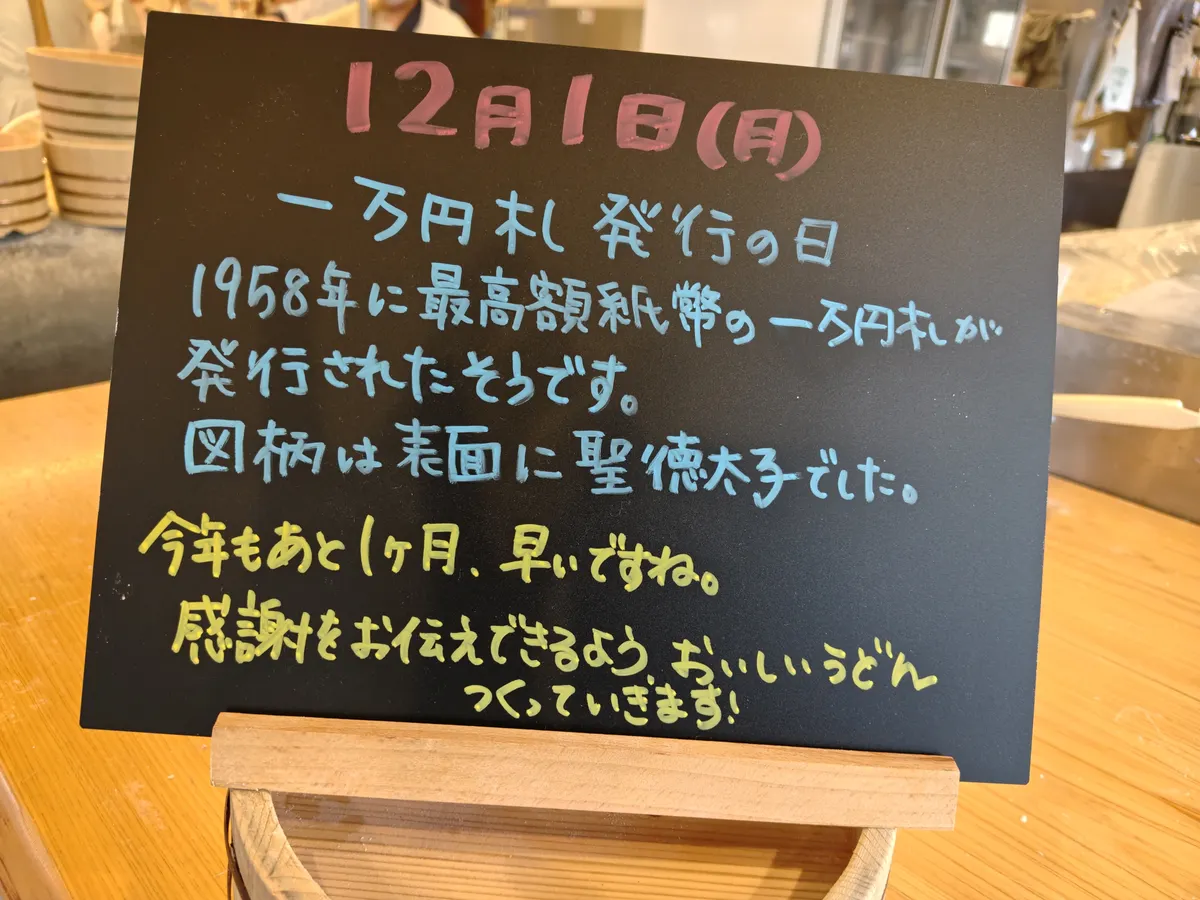 12月1日(月)
一万円札 発行の日
1958年に最高額紙幣の一万円札が
発行されたそうです。
図柄は表面に聖徳太子でした。
今年もあと1ヶ月、早いですね。
感謝をお伝えできるよう、おいしいうどん
つくっていきます!